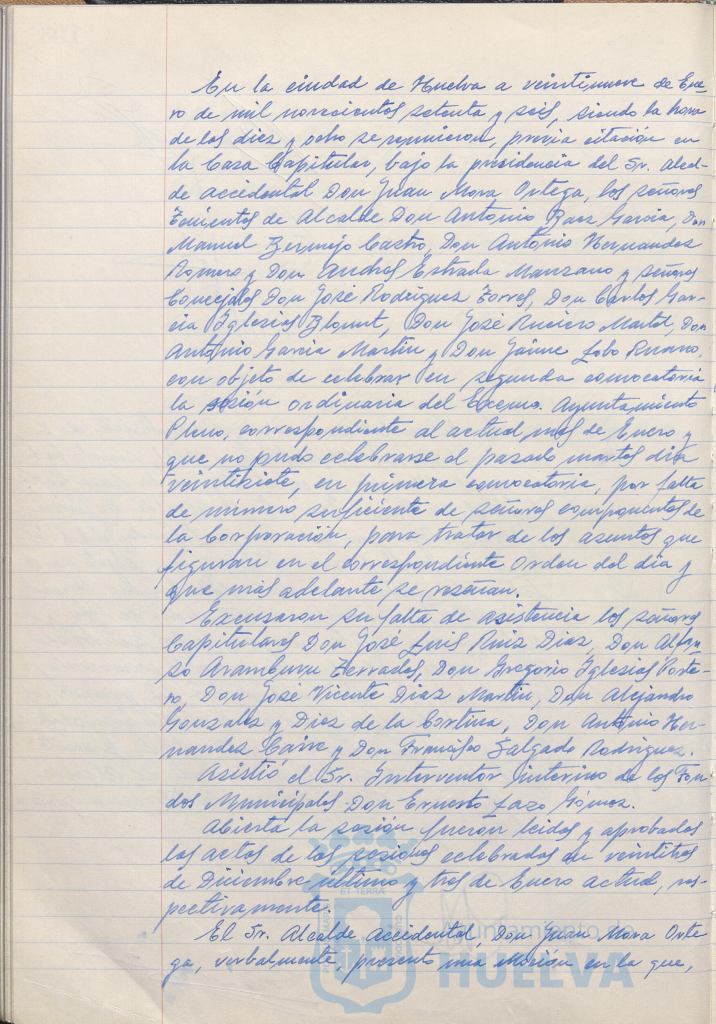 En la ciudad de Huelva a veintinueve de Ene-
ro de mil novecientos setenta y seis, siendo la hora
de las diez y ocho se reunieron, previa citación en
la Casa Capitular, bajo la presidencia del Sr. Alcal-
de accidental Don Juan Mora Ortega, los señores
Tenientes de Alcalde Don Antonio Baez Garcia, Don
Manuel Bermejo Castro, Don Antonio Hernandez
Romero y Don Andres Estrada Manzano y señores
Concejales Don José Rodriguez Torres, Don Carlos Gar-
cia Iglesias Blount, Don José Ruciero Martel, Don
Antonio Garcia Martin y Don Jaime Lobo Ruano,
con objeto de celebrar en segunda convocatoria
la sesión ordinaria del Excmo. Ayuntamiento
Pleno, correspondiente al actual mes de Enero y
que no pudo celebrarse el pasado martes dia
veintisiete, en primera convocatoria, por falta
de número suficiente de señores componentes de
la Corporación, para tratar de los asuntos que
figuran en el correspondiente Orden del dia y
que más adelante se reseñan.
Excusaron su falta de asistencia los señores
Capitulares Don José Luis Ruiz Diaz, Don Alfon-
so Aramburu Terrades, Don Gregorio Iglesias Porte-
ro, Don José Vicente Diaz Martin, Don Alejandro
Gonzalez y Diez de la Cortina, Don Antonio Her-
nandez y Don Francisco Salgado Rodriguez.
Asistió el Sr. Interventor interino de los Fon-
dos Municipales Don Ernesto Lazo Gómez.
Abierta la sesión fueron leidas y aprobadas
las actas de las sesiones celebradas en veintitres
de Diciembre último y tres de Enero actual, res-
pectivamente.
El Sr. Alcalde accidental, Don Juan Mora Orte-
ga, verbalmente, presento una Moción en la que,
ET TERRÆ
Ayuntamiento de
HUELVA